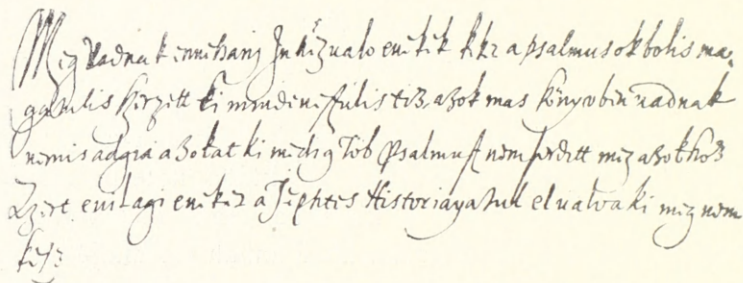 Meg Vadnak ennihany Inhez ualo enekek a psalmusokbolis ma-
gatulis szerzett ki mindenestülis tiz azok mas könyvbin vadnak
nemis adgia azokat ki midigh Töb psalmust nem fordett meg azokhoz
Ezert euilagi enekek a Jephtes Historiayatul elualva ki meg nem
kesz